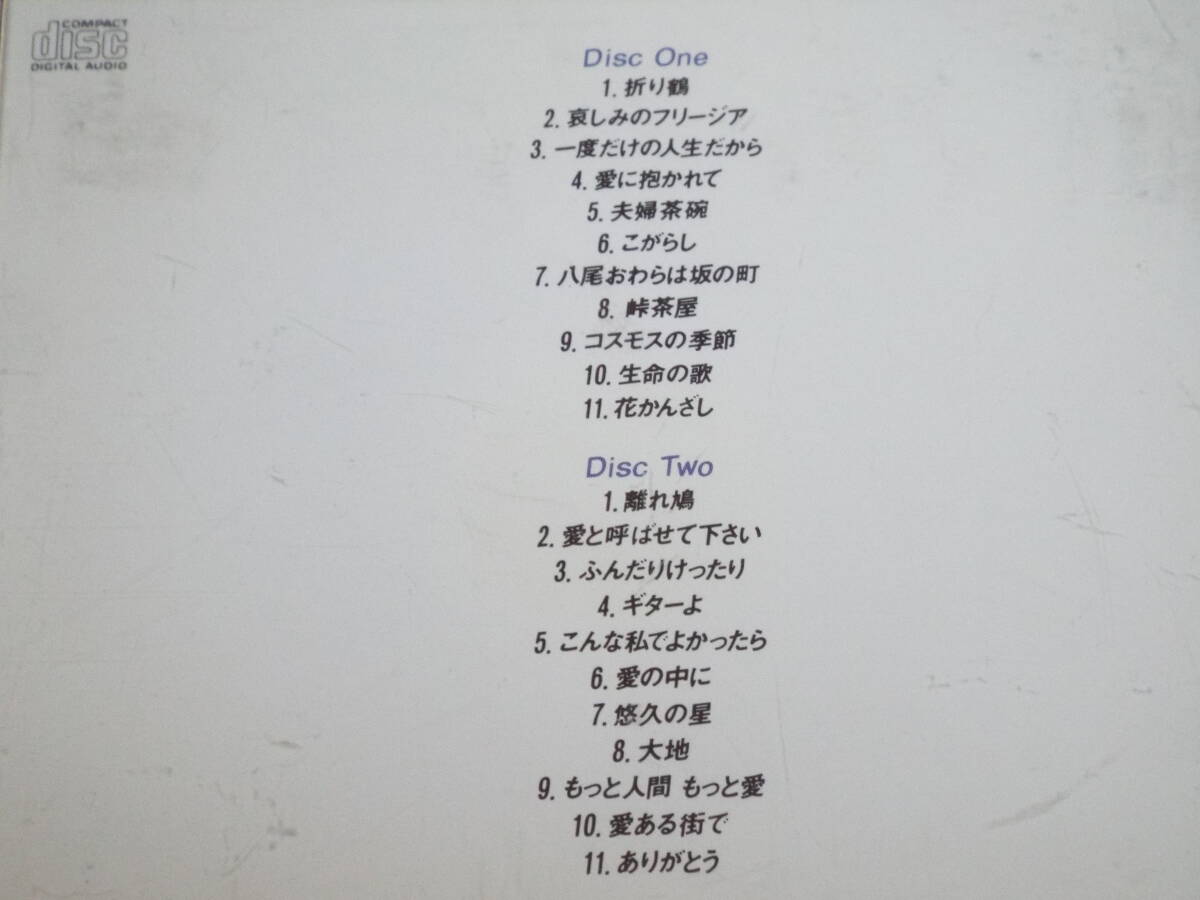 COMPACT
disc
DIGITAL AUDIO
Disc One
1. 折り鶴
2. 哀しみのフリージア
3. 一度だけの人生だから
4. 愛に抱かれて
5. 夫婦茶碗
6. こがらし
7. 八尾おわらは坂の町
8. 峠茶屋
9. コスモスの季節
10. 生命の歌
11. 花かんざし
Disc Two
1. 離れ鳩
2. 愛と呼ばせて下さい
3. ふんだりけったり
4. ギターよ
5. こんな私でよかったら
6. 愛の中に
7. 悠久の星
8. 大地
9. もっと人間 もっと愛
10. 愛ある街で
11. ありがとう